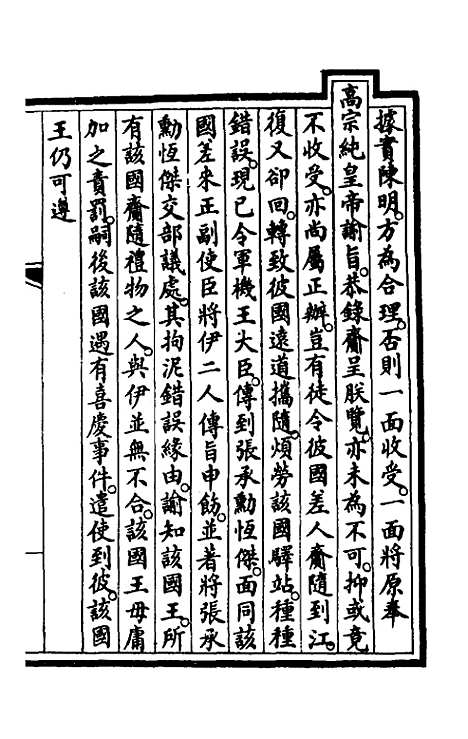 據實陳明。方為合理。否則一面收受。一面將原奉
高宗純皇帝諭旨。恭錄齎呈朕覽。亦未為不可。抑或竟
不收受。亦尚屬正辦。豈有徒令彼國差人齎隨到江。
復又卻回。轉致彼國遠道攜隨。煩勞該國驛站。種種
錯誤。現已令軍機王大臣。傳到張承勳恆傑。面同該
國差來正副使臣將伊二人傳旨申飭。並著將張承
勳恆傑交部議處。其拘泥錯誤緣由。諭知該國王。所
有該國齎隨禮物之人。與伊並無不合。該國王毋庸
加之責罰。嗣後該國遇有喜慶事件。遣使到彼。該國
王仍可遵